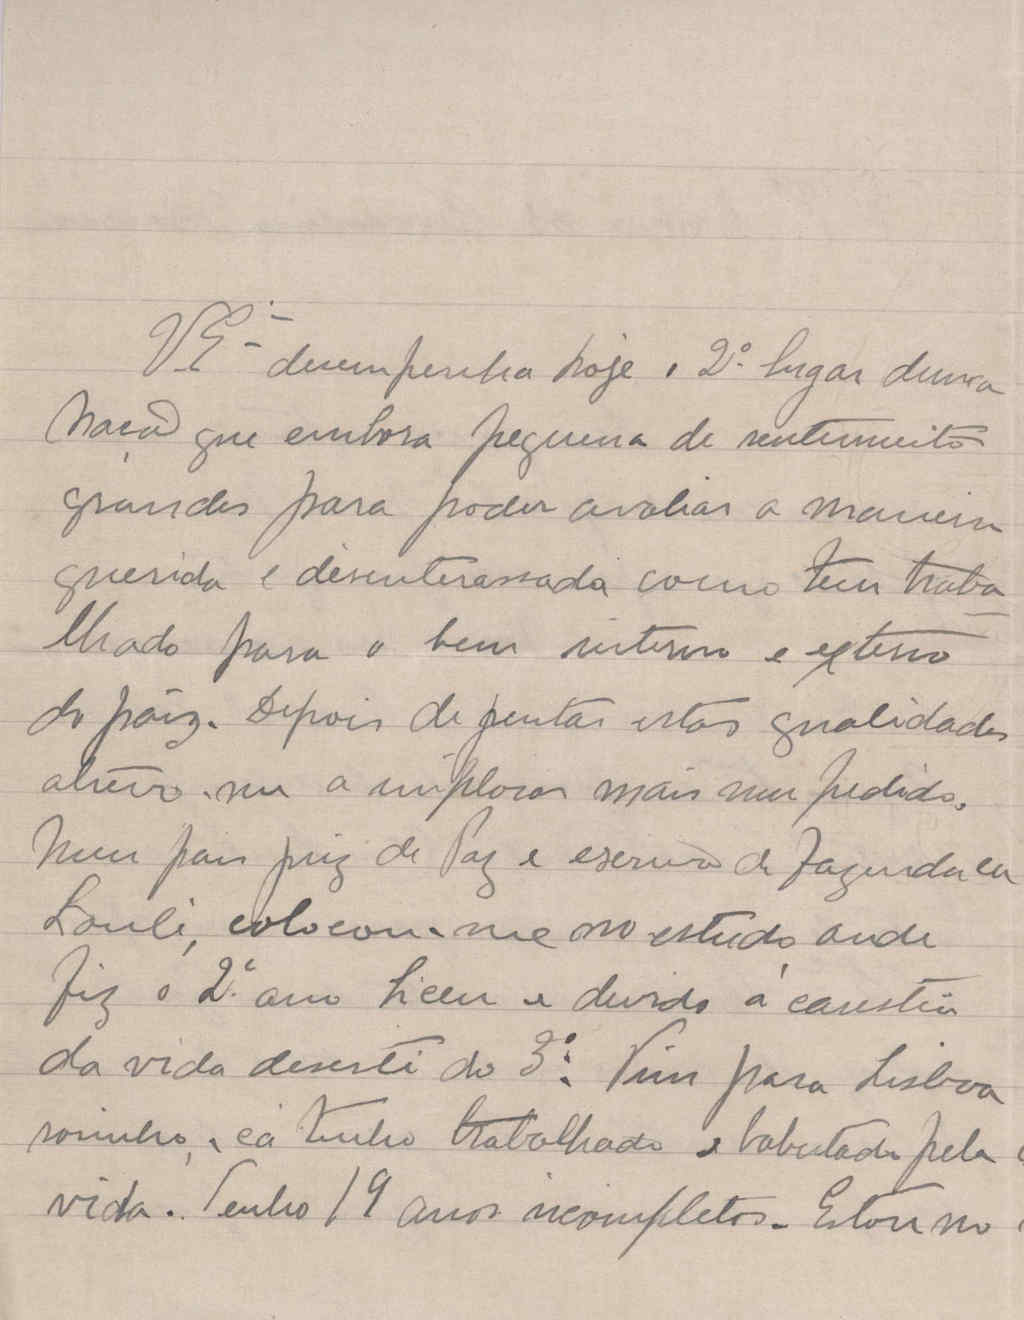 V. E.ª desempenha hoje o 2.º lugar dunca
Nação que embora pequena de sentimentos
grandes para poder avaliar a maneira
querida e desenterassada como tem traba
lhado para o bem interno e externo
do paiz. Depois de juntas estas qualidades
atrevo-me a implorar mais meu pedido.
Meu pai juiz de Paz e escrivão de Fazenda em
Loulé, colocou-me no estudo, onde
fiz o 2.º ano liceu e devido á carestia
da vida desesti do 3.º. Vim para Lisboa
sosinho, cá tenho trabalhado e labutado pela
vida. Tenho 19 anos incompletos. Estou no